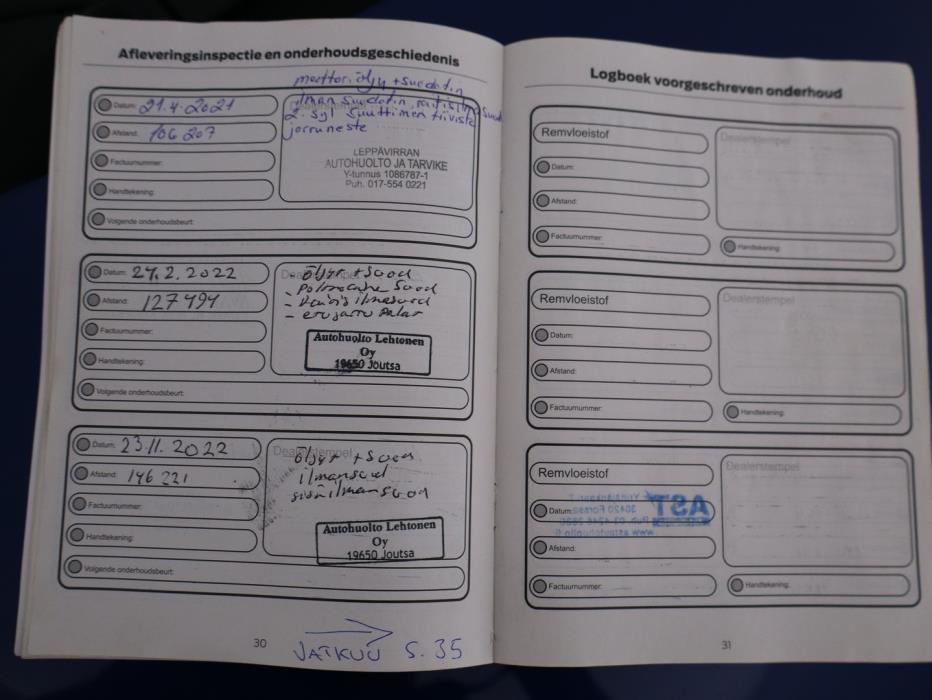 Afleveringsinspectie en onderhoudsgeschiedenis
moottoriöljy + suodatin
Datum: 21.4.2021
ilman suodatin, raitisilma suod
2. syl suuttimen tiiviste
Afstand: 106 207
jarruneste
LEPPÄVIRRAN
AUTOHUOLTO JA TARVIKE
Y-tunnus 1086787-1
Puh. 017-554 0221
Factuurnummer:
Handtekening:
Volgende onderhoudsbeurt:
Datum: 24.2.2022
Dealerstempel
öljyt + suod
- Polttoaine suod
- ilmasuod
- etujarru palat
Afstand: 127494
Factuurnummer:
Autohuolto Lehtonen
Oy
19650 Joutsa
Handtekening:
Volgende onderhoudsbeurt:
Datum: 23.11.2022
Dealerstempel
öljyt + suod
ilmansuod
sisäilmansuod
Afstand: 146 221
Factuurnummer:
Autohuolto Lehtonen
Oy
19650 Joutsa
Handtekening:
Volgende onderhoudsbeurt:
30
JATKUU S. 35
Logboek voorgeschreven onderhoud
Remvloeistof
Dealerstempel
Datum:
Afstand:
Factuurnummer:
Handtekening:
Remvloeistof
Dealerstempel
Datum:
Afstand:
Factuurnummer:
Handtekening:
Remvloeistof
Dealerstempel
Datum:
AST
Afstand:
Factuurnummer:
Handtekening:
31